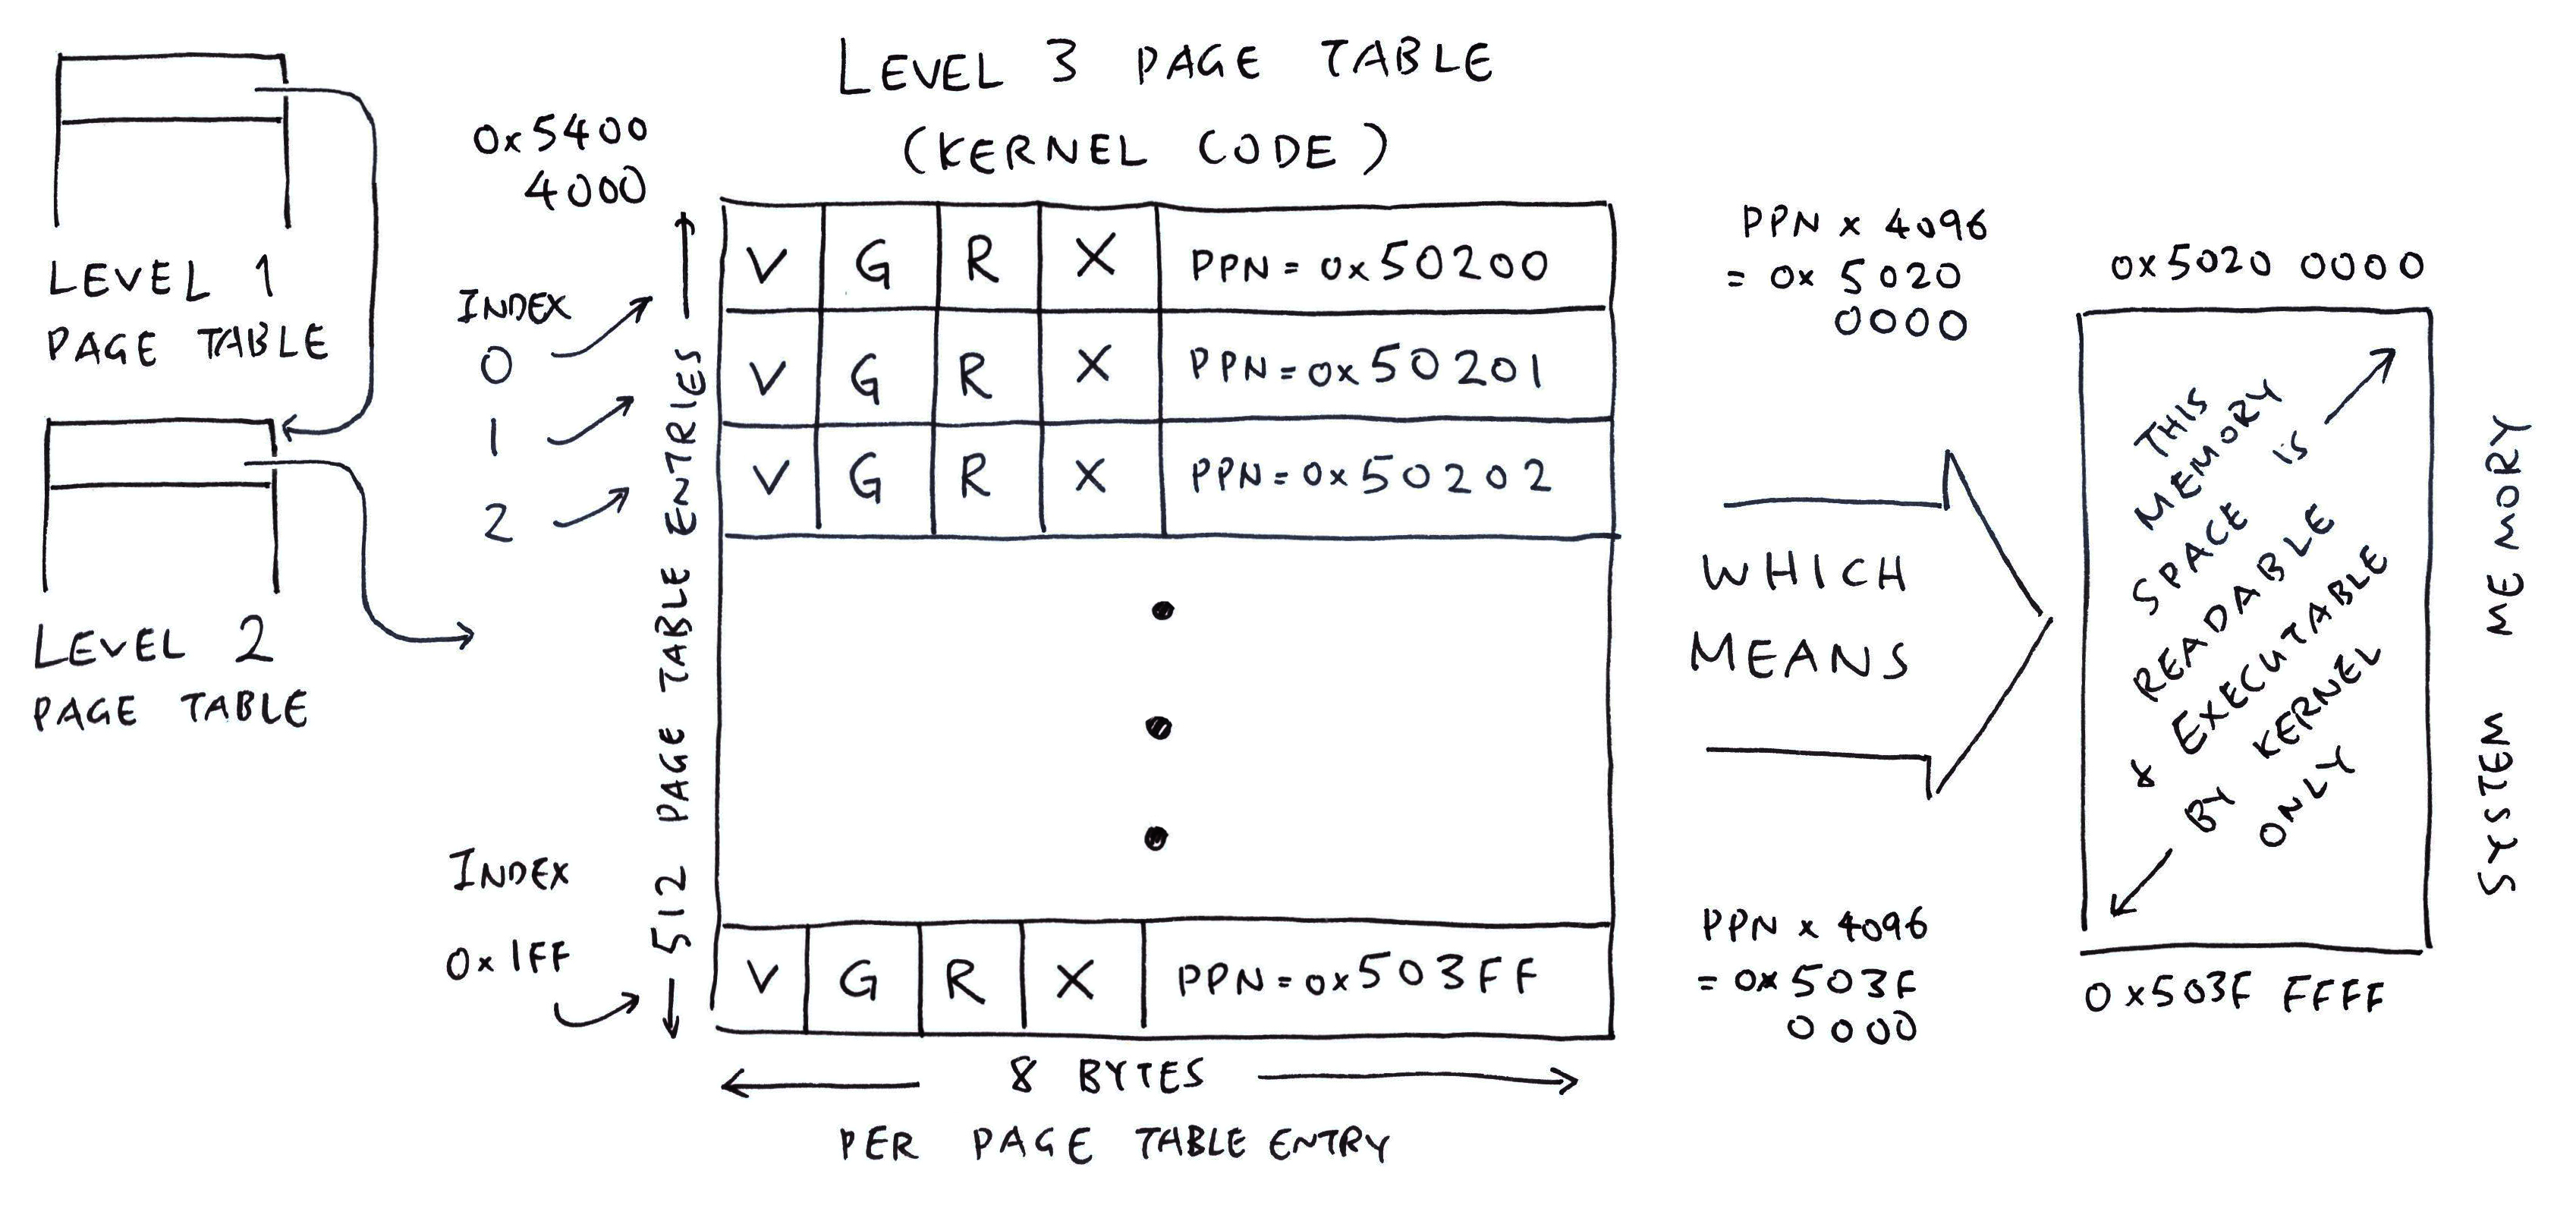 LEVEL 3 PAGE TABLE
(KERNEL CODE)
LEVEL 1
PAGE TABLE
LEVEL 2
PAGE TABLE
0x5400
4000
INDEX
0
1
2
INDEX
0x1FF
512 PAGE TABLE ENTRIES
V G R X PPN = 0x50200
V G R X PPN = 0x50201
V G R X PPN = 0x50202
V G R X PPN = 0x503FF
8 BYTES
PER PAGE TABLE ENTRY
PPN x 4096
= 0x 5020
0000
WHICH
MEANS
PPN x 4096
= 0x503F
0000
0x5020 0000
THIS
MEMORY
SPACE IS
READABLE
& EXECUTABLE
BY KERNEL
ONLY
0x503F FFFF
SYSTEM MEMORY